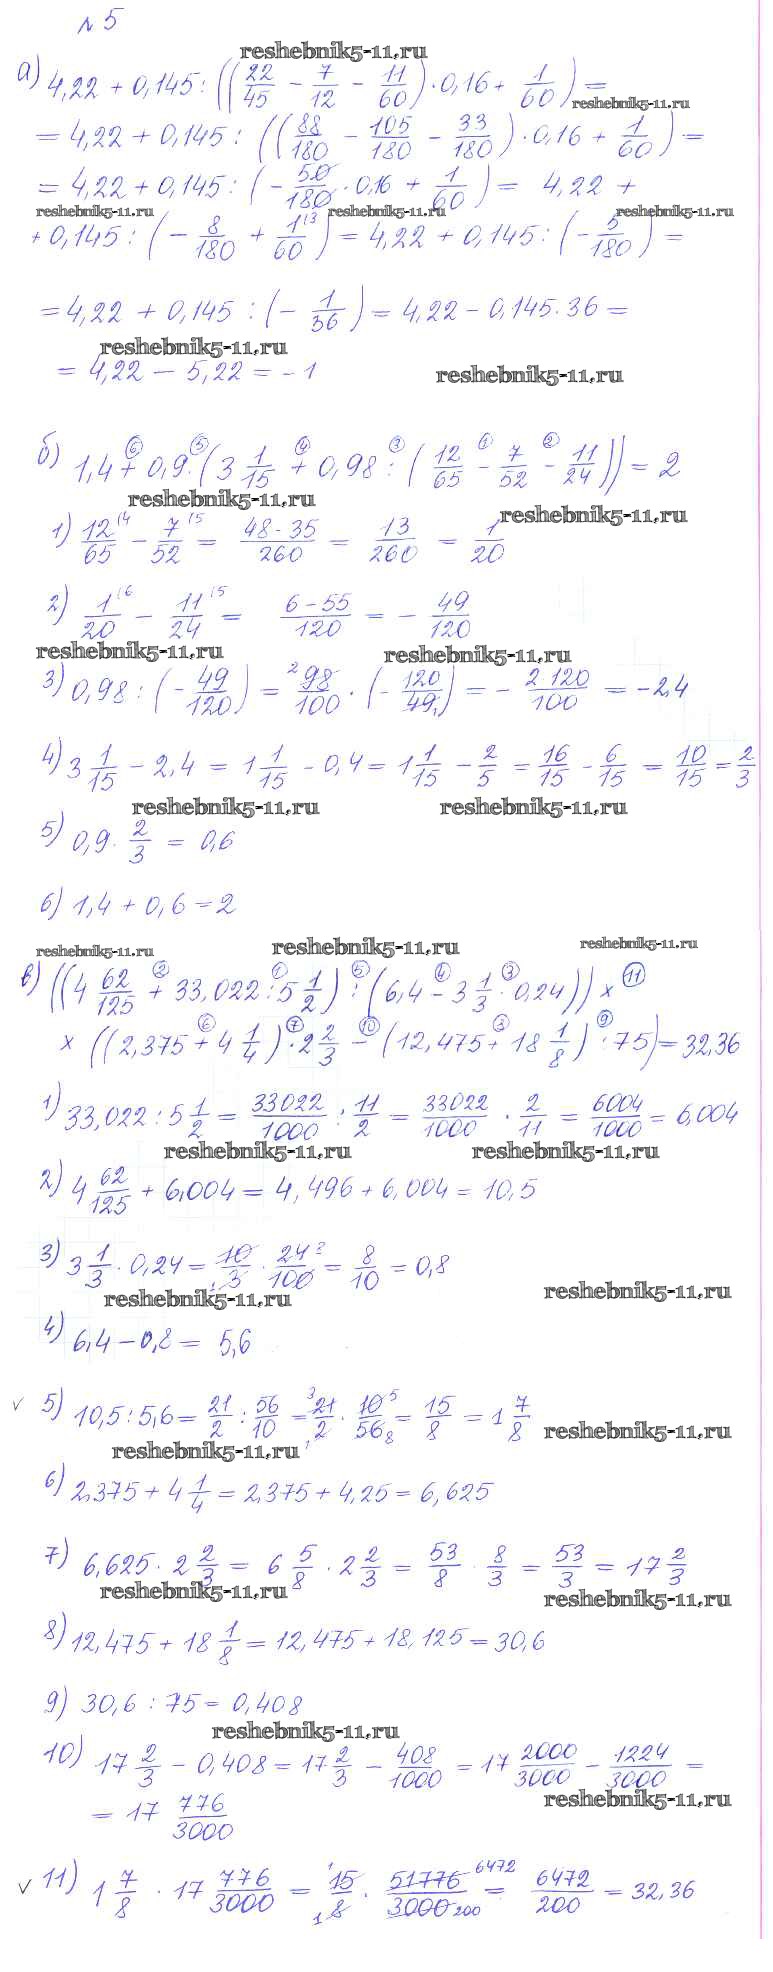 №5
reshebnik5-11.ru
а) 4,22 + 0,145 : ((22/45 − 7/12 − 11/60) · 0,16 + 1/60) =
reshebnik5-11.ru
= 4,22 + 0,145 : ((88/180 − 105/180 − 33/180) · 0,16 + 1/60) =
= 4,22 + 0,145 : (− 50/180 · 0,16 + 1/60) = 4,22 +
reshebnik5-11.ru reshebnik5-11.ru reshebnik5-11.ru
+ 0,145 : (− 8/180 + 1/60 ^(3) = 4,22 + 0,145 : (− 5/180) =
= 4,22 + 0,145 : (− 1/36) = 4,22 − 0,145 · 36 =
reshebnik5-11.ru
= 4,22 − 5,22 = −1
reshebnik5-11.ru
б) 1,4 +⑥ 0,9 ·⑤ (3 1/15 +④ 0,98 :③ (12/65 −① 7/52 −② 11/24)) = 2
reshebnik5-11.ru
reshebnik5-11.ru
1) 12/65 ^(4 − 7/52 ^(5 = 48 - 35/260 = 13/260 = 1/20
2) 1/20 ^(6 − 11/24 ^(5 = 6 − 55/120 = − 49/120
reshebnik5-11.ru reshebnik5-11.ru
3) 0,98 : (− 49/120) = ²98/100 · (− 120/49₁) = − 2 120/100 = −2,4
4) 3 1/15 − 2,4 = 1 1/15 − 0,4 = 1 1/15 − 2/5 = 16/15 − 6/15 = 10/15 = 2/3
reshebnik5-11.ru reshebnik5-11.ru
5) 0,9 · 2/3 = 0,6
6) 1,4 + 0,6 = 2
reshebnik5-11.ru reshebnik5-11.ru reshebnik5-11.ru
в) ((4 62/125 +② 33,022 :① 5 1/2) :⑤ (6,4 −④ 3 1/3 ·③ 0,24)) ×⑪
× ((2,375 +⑥ 4 1/4) ·⑦ 2 2/3 −⑩ (12,475 +⑧ 18 1/8) :⑨ 75) = 32,36
1) 33,022 : 5 1/2 = 33022/1000 : 11/2 = 33022/1000 · 2/11 = 6004/1000 = 6,004
reshebnik5-11.ru reshebnik5-11.ru
2) 4 62/125 + 6,004 = 4,496 + 6,004 = 10,5
3) 3 1/3 · 0,24 = 10/₁3 · 24²/100 = 8/10 = 0,8
reshebnik5-11.ru reshebnik5-11.ru
4) 6,4 − 0,8 = 5,6
√ 5) 10,5 : 5,6 = 21/2 : 56/10 = ³21/2₁ · 10⁵/56₈ = 15/8 = 1 7/8
reshebnik5-11.ru
reshebnik5-11.ru
6) 2,375 + 4 1/4 = 2,375 + 4,25 = 6,625
7) 6,625 · 2 2/3 = 6 5/8 · 2 2/3 = 53/8 · 8/3 = 53/3 = 17 2/3
reshebnik5-11.ru reshebnik5-11.ru
8) 12,475 + 18 1/8 = 12,475 + 18,125 = 30,6
9) 30,6 : 75 = 0,408
reshebnik5-11.ru
10) 17 2/3 − 0,408 = 17 2/3 − 408/1000 = 17 2000/3000 − 1224/3000 =
reshebnik5-11.ru
= 17 776/3000
√ 11) 1 7/8 · 17 776/3000 = ¹15/₁8 · 51776 ⁶⁴⁷²/3000 ₂₀₀ = 6472/200 = 32,36